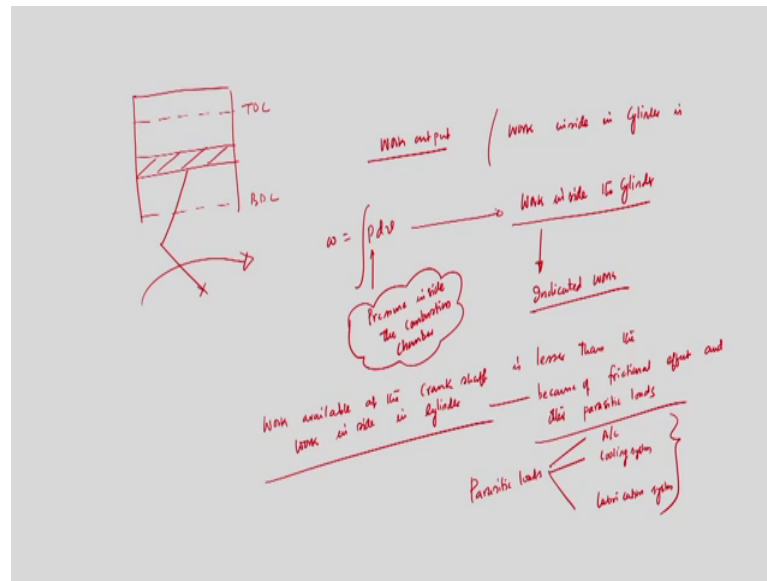 TDC
BDC
Work output
Work inside in cylinder is
w = ∫ pdv
Work inside the cylinder
Indicated work
Pressure inside
the combustion
chamber
Work available at the crank shaft is lesser than the
work in side in cylinder
because of frictional effect and
other parasitic loads
Parasitic loads
A/C
Cooling system
Lubrication system